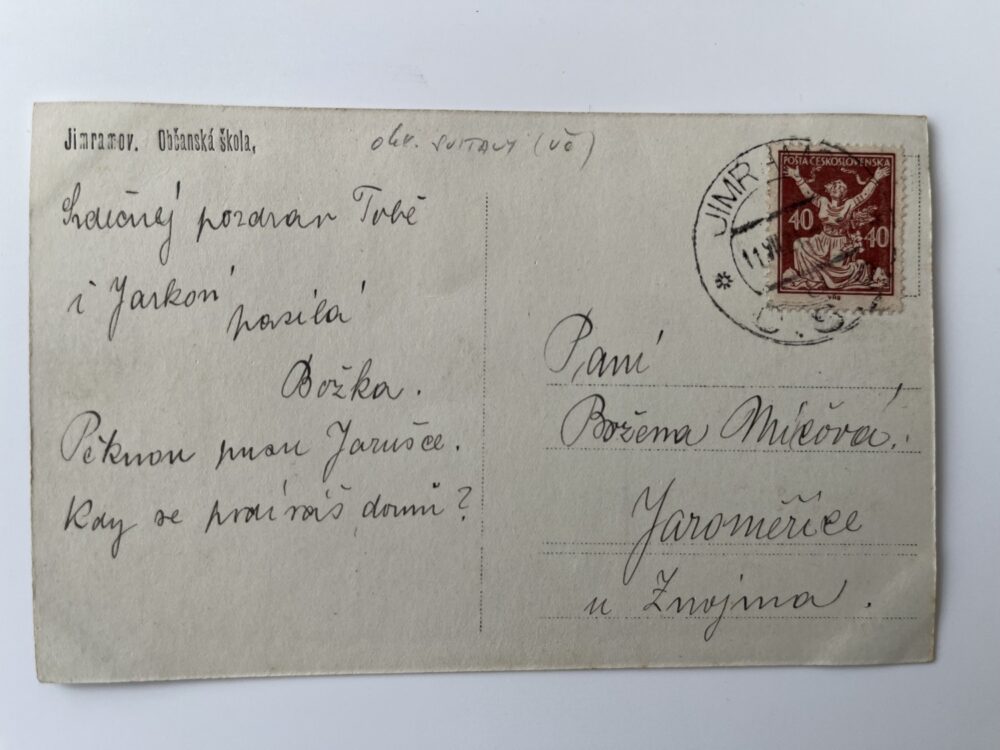 Jimramov. Občanská škola,
okr. SVITAVY (VČ)
Srdečný pozdrav Tobě
i Jarkovi
posílá
Božka.
Pěknou pusu Jarušce.
Kdy se podíváš domů?
JIMRAM
11.VII
Č.S.
POŠTA ČESKOSLOVENSKA
40 40
Paní
Božena Míčová,
Jaroměřice
u Znojma.